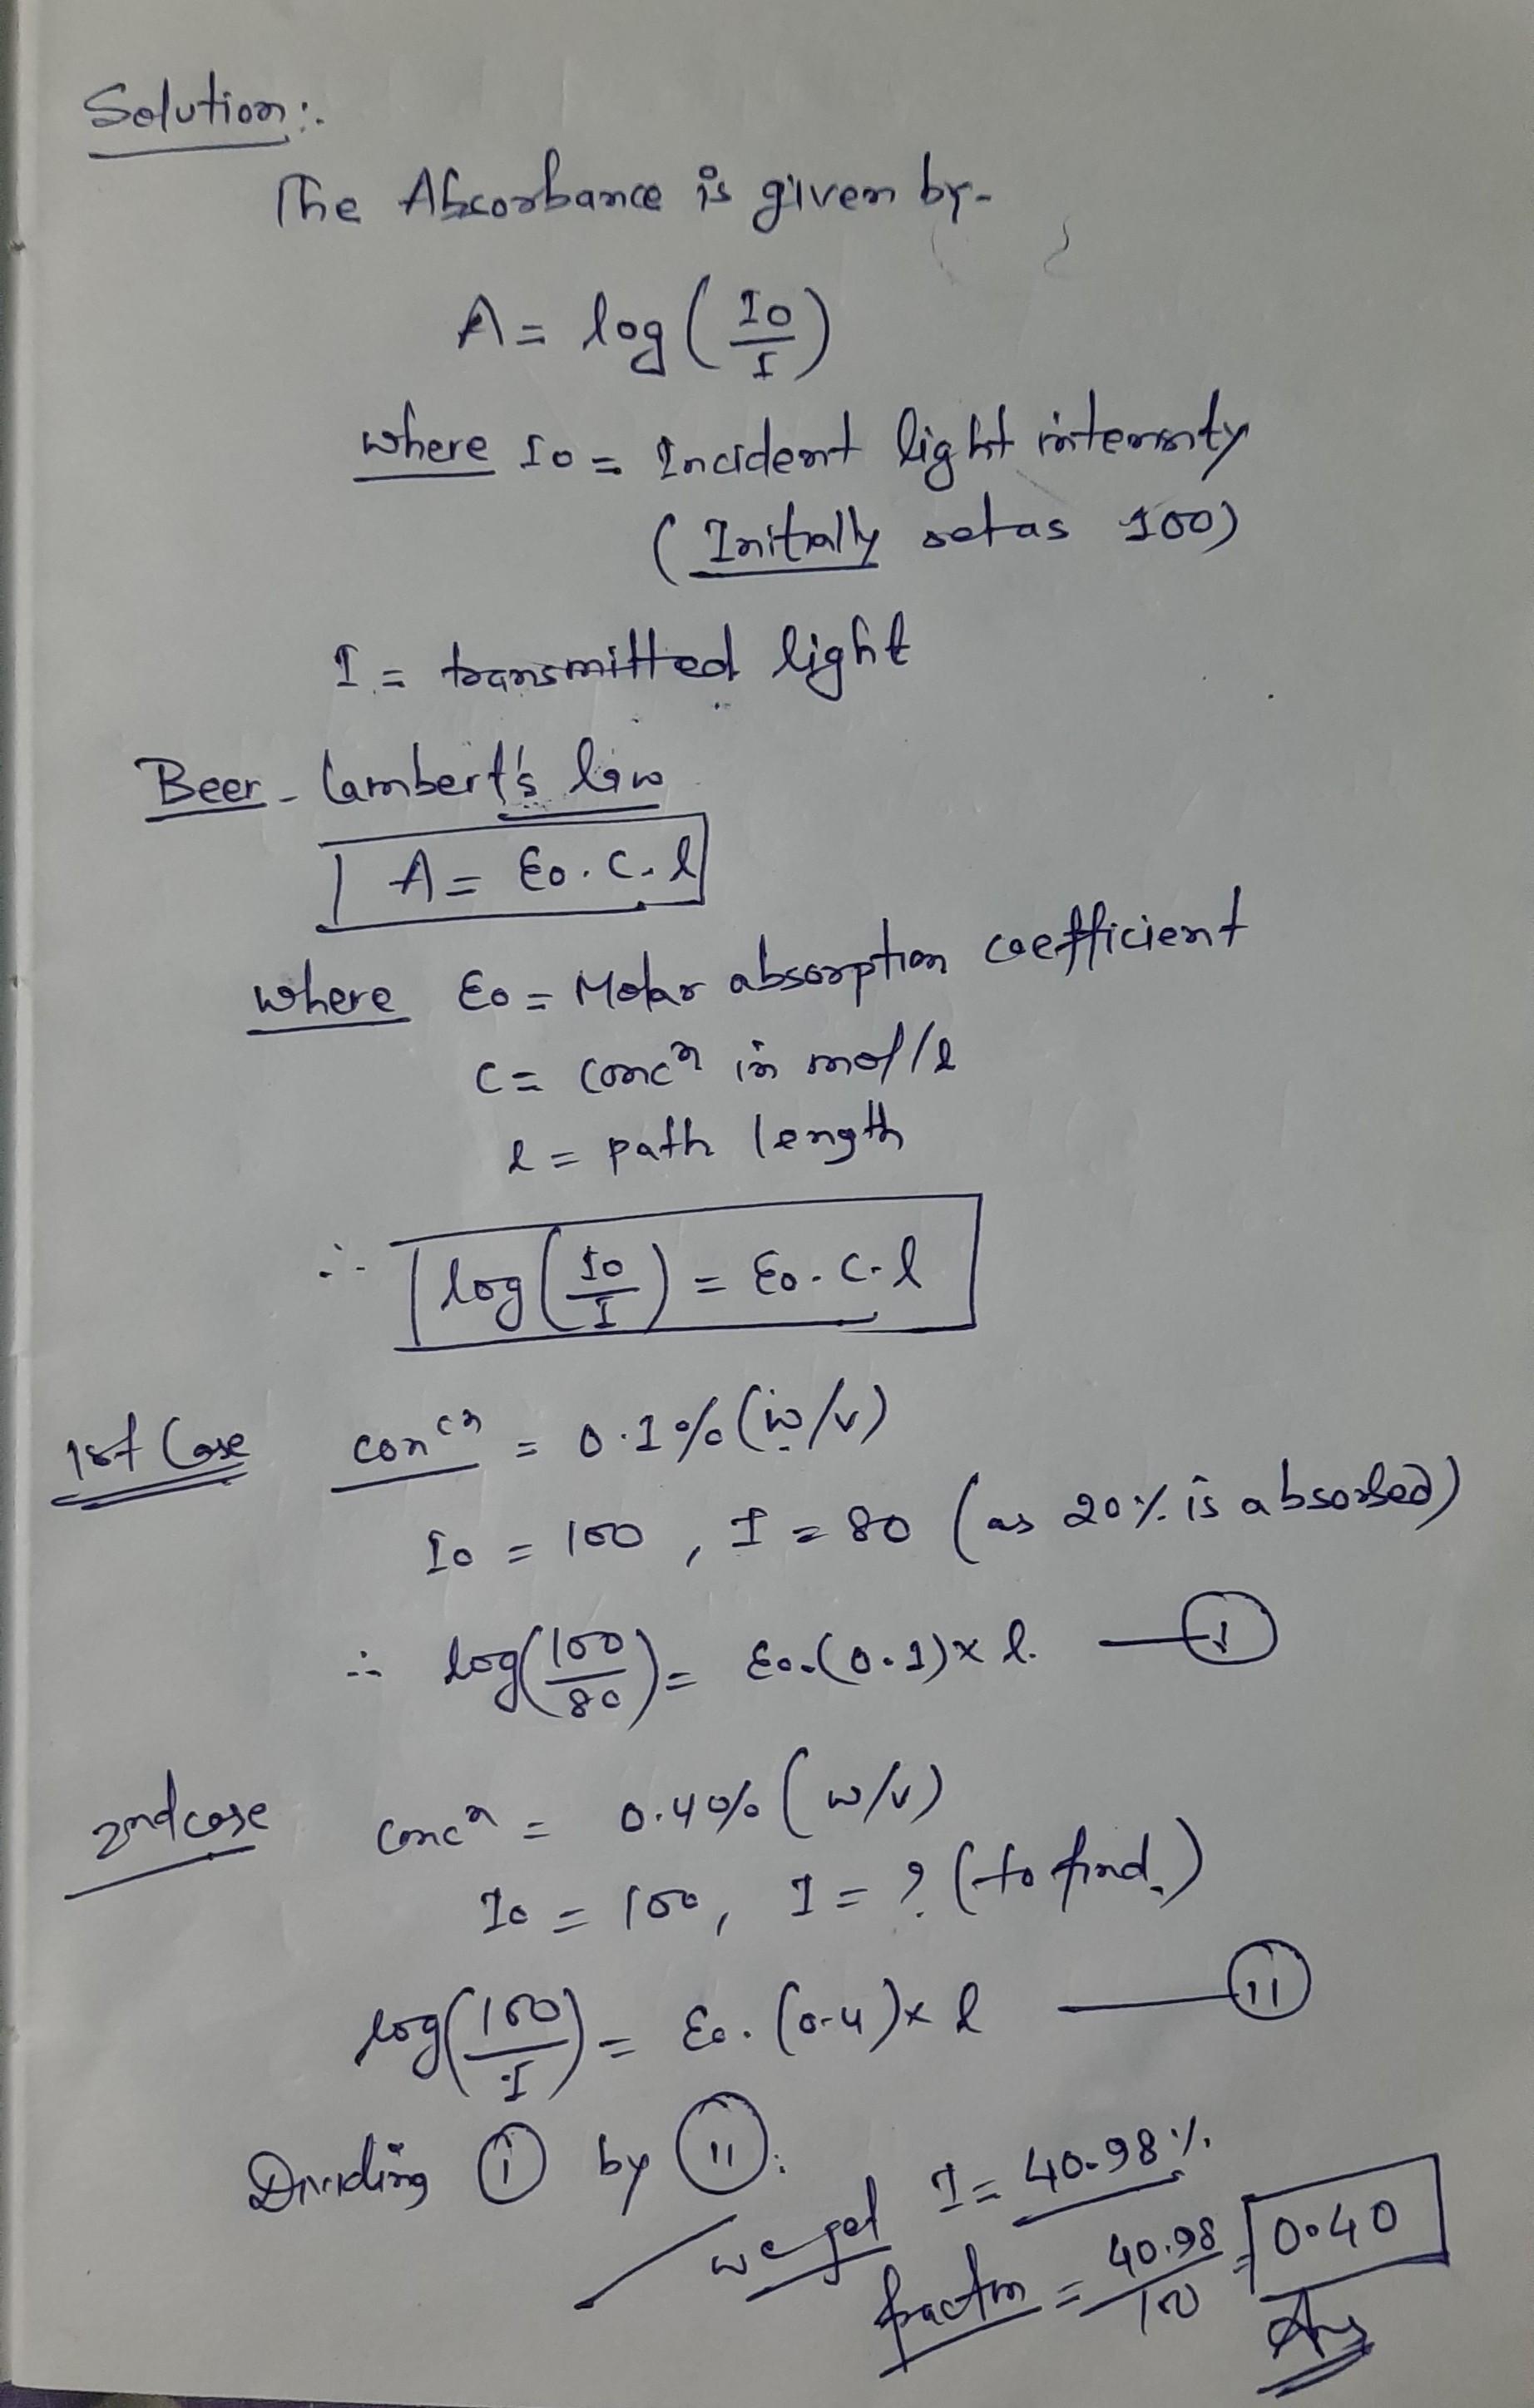 Solution:.
The Absorbance is given by-
A = log (I0/I)
where I0 = Incident light intensity
(Initially set as 100)
I = transmitted light
Beer-Lambert's law
A = ε0.C.l
where ε0 = Molar absorption coefficient
C = concⁿ in mol/l
l = path length
∴ log (I0/I) = ε0.C.l
1st Case concⁿ = 0.1% (w/v)
I0 = 100, I = 80 (as 20% is absorbed)
∴ log(100/80) = ε0.(0.1)×l. — I
2nd case concⁿ = 0.4% (w/v)
I0 = 100, I = ? (to find.)
log(100/I) = ε0.(0.4)×l — II
Dividing I by II.
we get I = 40.98%.
fraction = 40.98/100 = 0.40
Ans